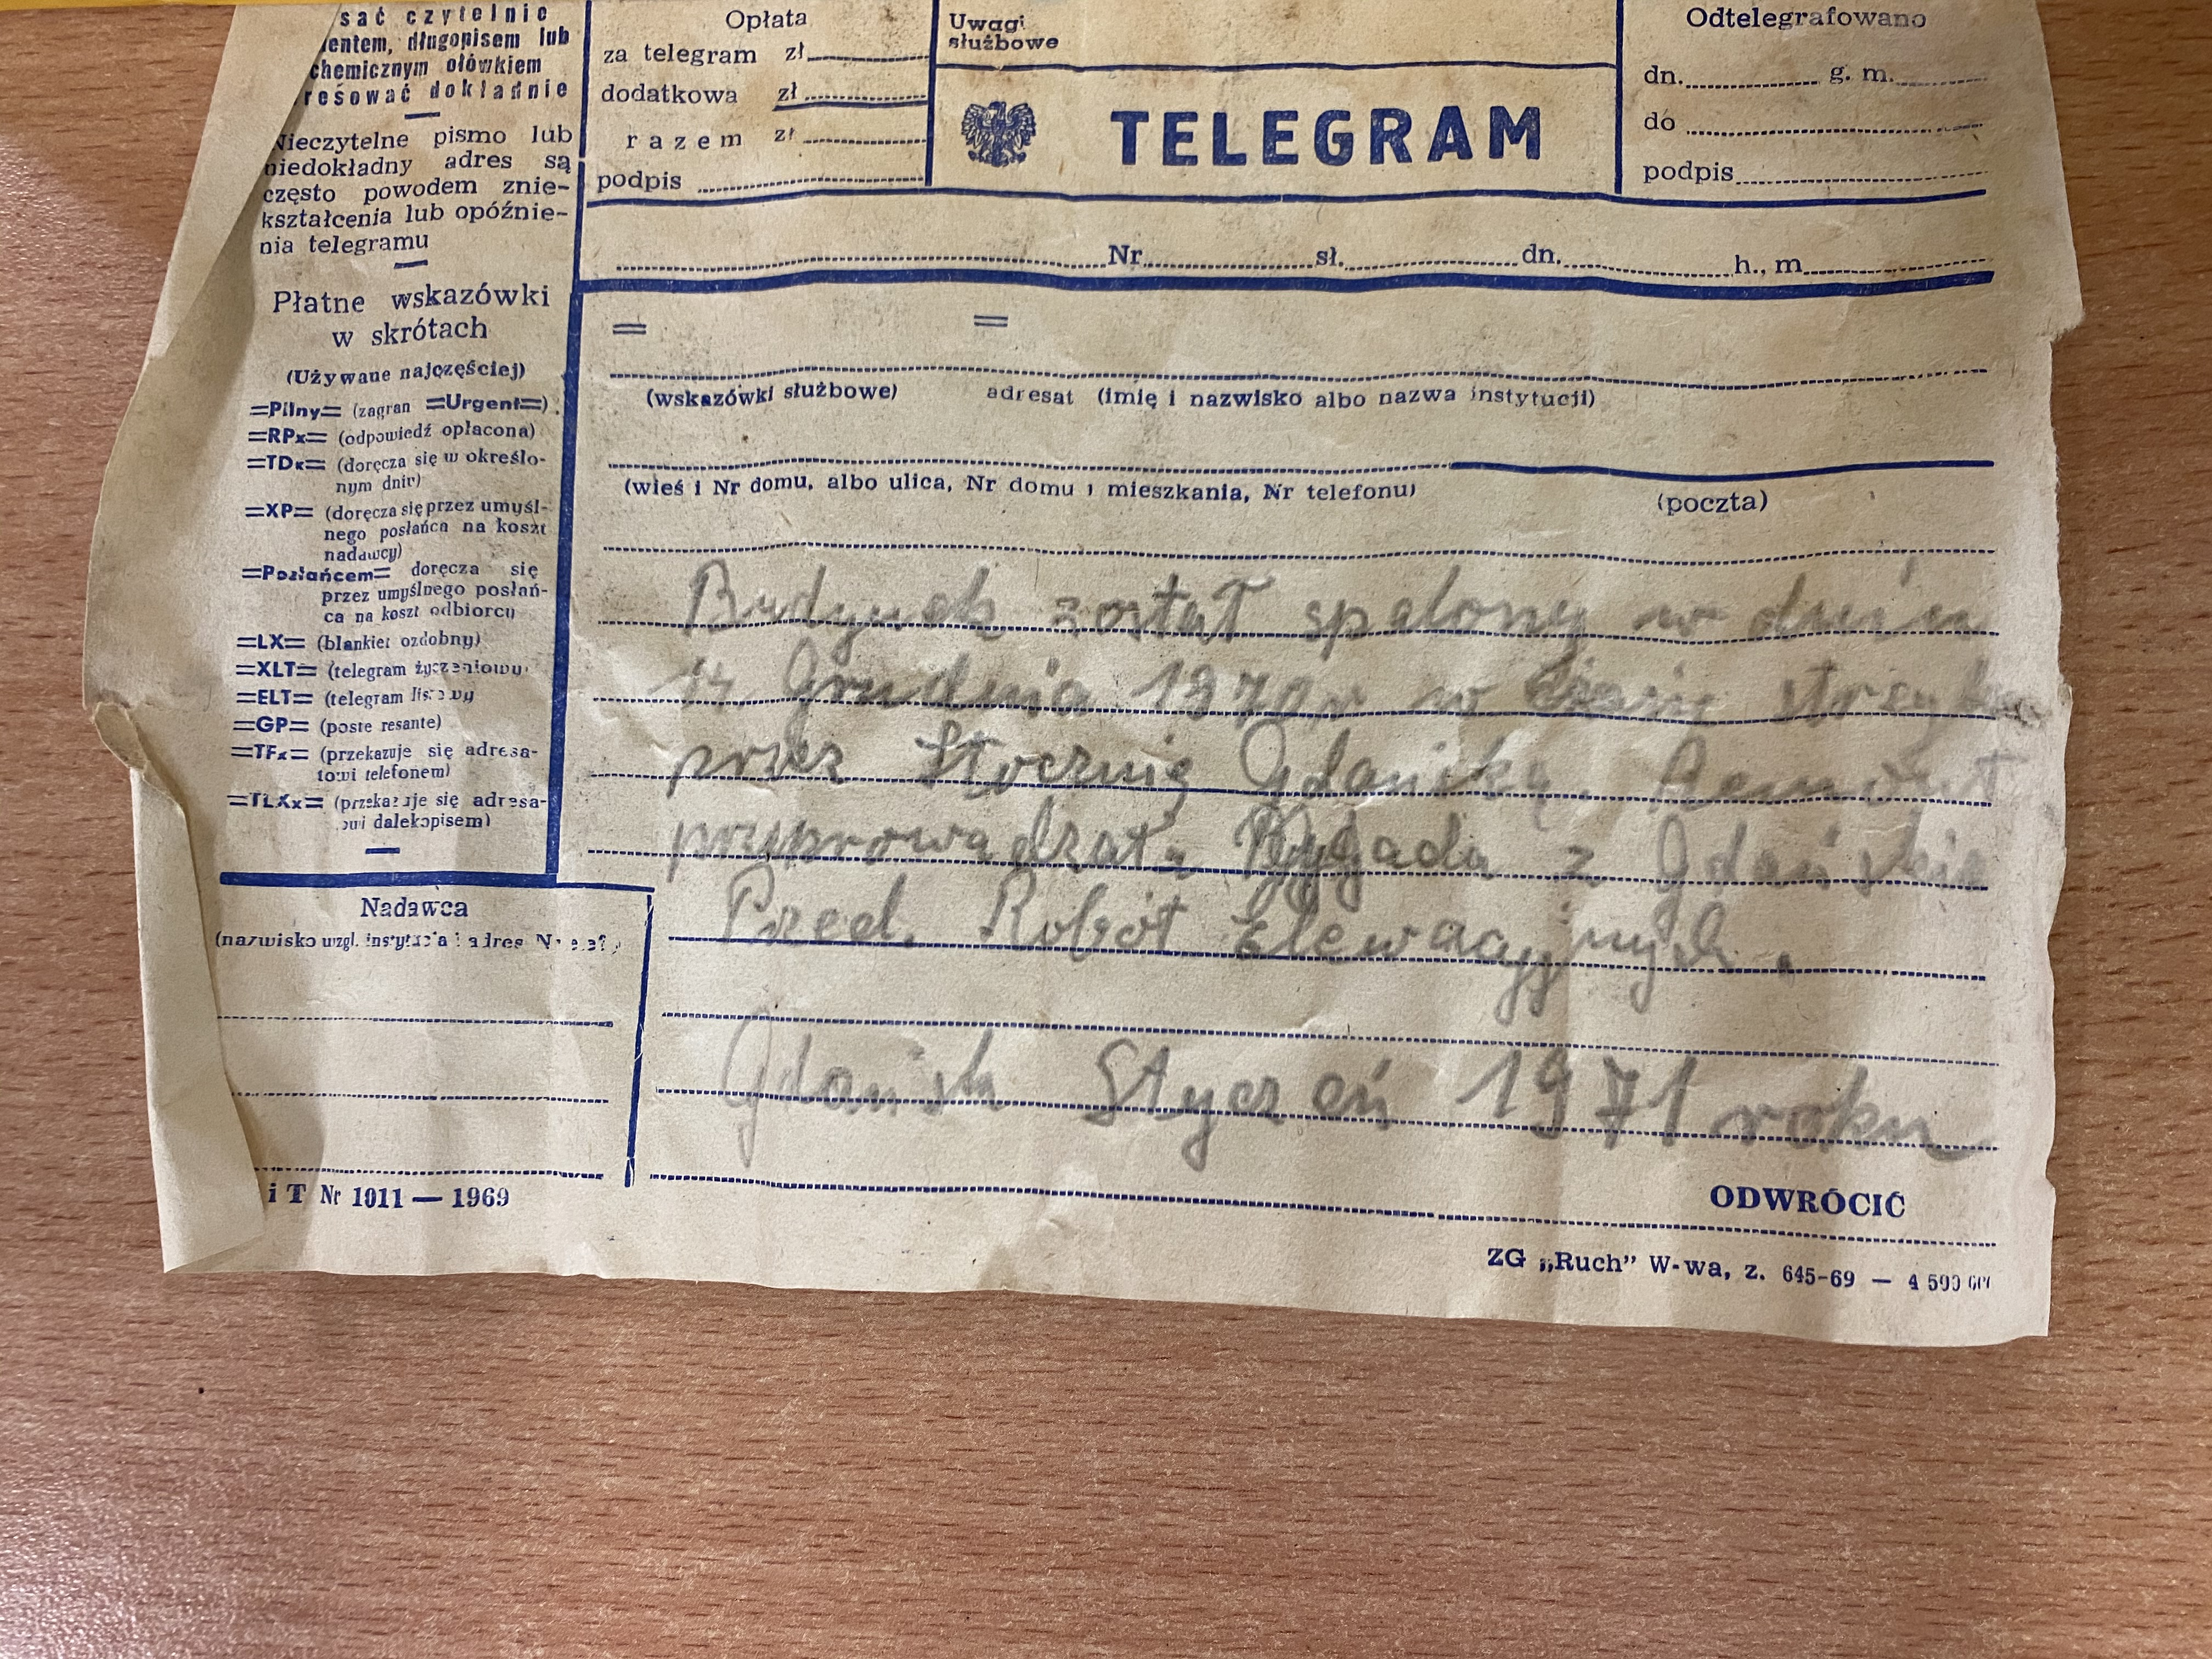 sać czytelnie
długopisem lub
chemicznym ołówkiem
dokładnie
Nieczytelne pismo lub
niedokładny adres są
często powodem znie-
kształcenia lub opóźnie-
nia telegramu
Płatne wskazówki
w skrótach
(Używane najczęściej)
=Pilny= (zagran =Urgent=)
=RPx= (odpowiedź opłacona)
=TDx= (doręcza się w określo-
nym dniu)
=XP= (doręcza się przez umyśl-
nego posłańca na koszt
nadawcy)
=Posłańcem= doręcza się
przez umyślnego posłań-
ca na koszt odbiorcy
=LX= (blankiet ozdobny)
=XLT= (telegram życzeniowy)
=ELT= (telegram listowy
=GP= (poste resante)
=TFx= (przekazuje się adresa-
towi telefonem)
=TLXx= (przekazuje się adresa-
towi dalekopisem)
Nadawca
(nazwisko wzgl. instytucja i adres
i T Nr 1011 — 1969
Opłata
za telegram zł
dodatkowa zł
razem zł
podpis
Uwagi
służbowe
TELEGRAM
Odtelegrafowano
dn. g. m.
do
podpis
Nr sł. dn. h., m
= =
(wskazówki służbowe) adresat (imię i nazwisko albo nazwa instytucji)
(wieś i Nr domu, albo ulica, Nr domu i mieszkania, Nr telefonu) (poczta)
Budynek został spalony w dniu
Grudnia 1970r w czasie
przez Stocznię Gdańską. Remont
przyprowadzała Brygada z
Przed. Robót Elewacyjnych.
Gdańsk Styczeń 1971 roku
ODWRÓCIĆ
ZG „Ruch” W-wa, z. 645-69 —